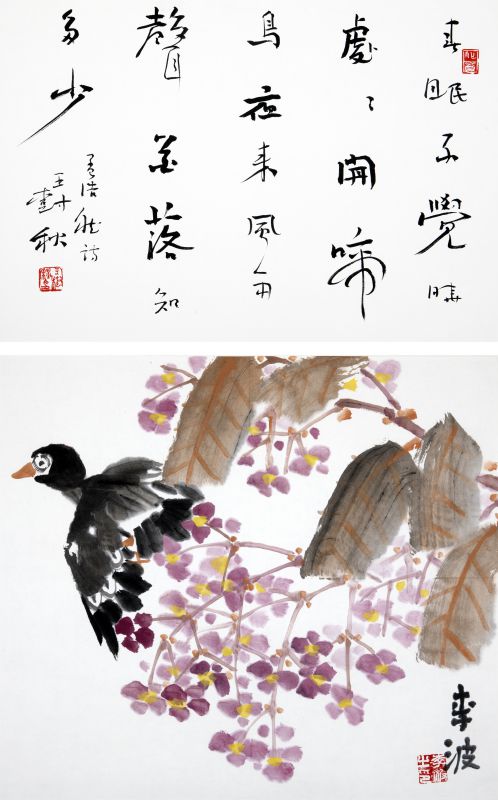 春眠不覺曉
處〻開啼
鳥夜来風雨
聲花落知
多少
孟浩然詩
王 秋
波